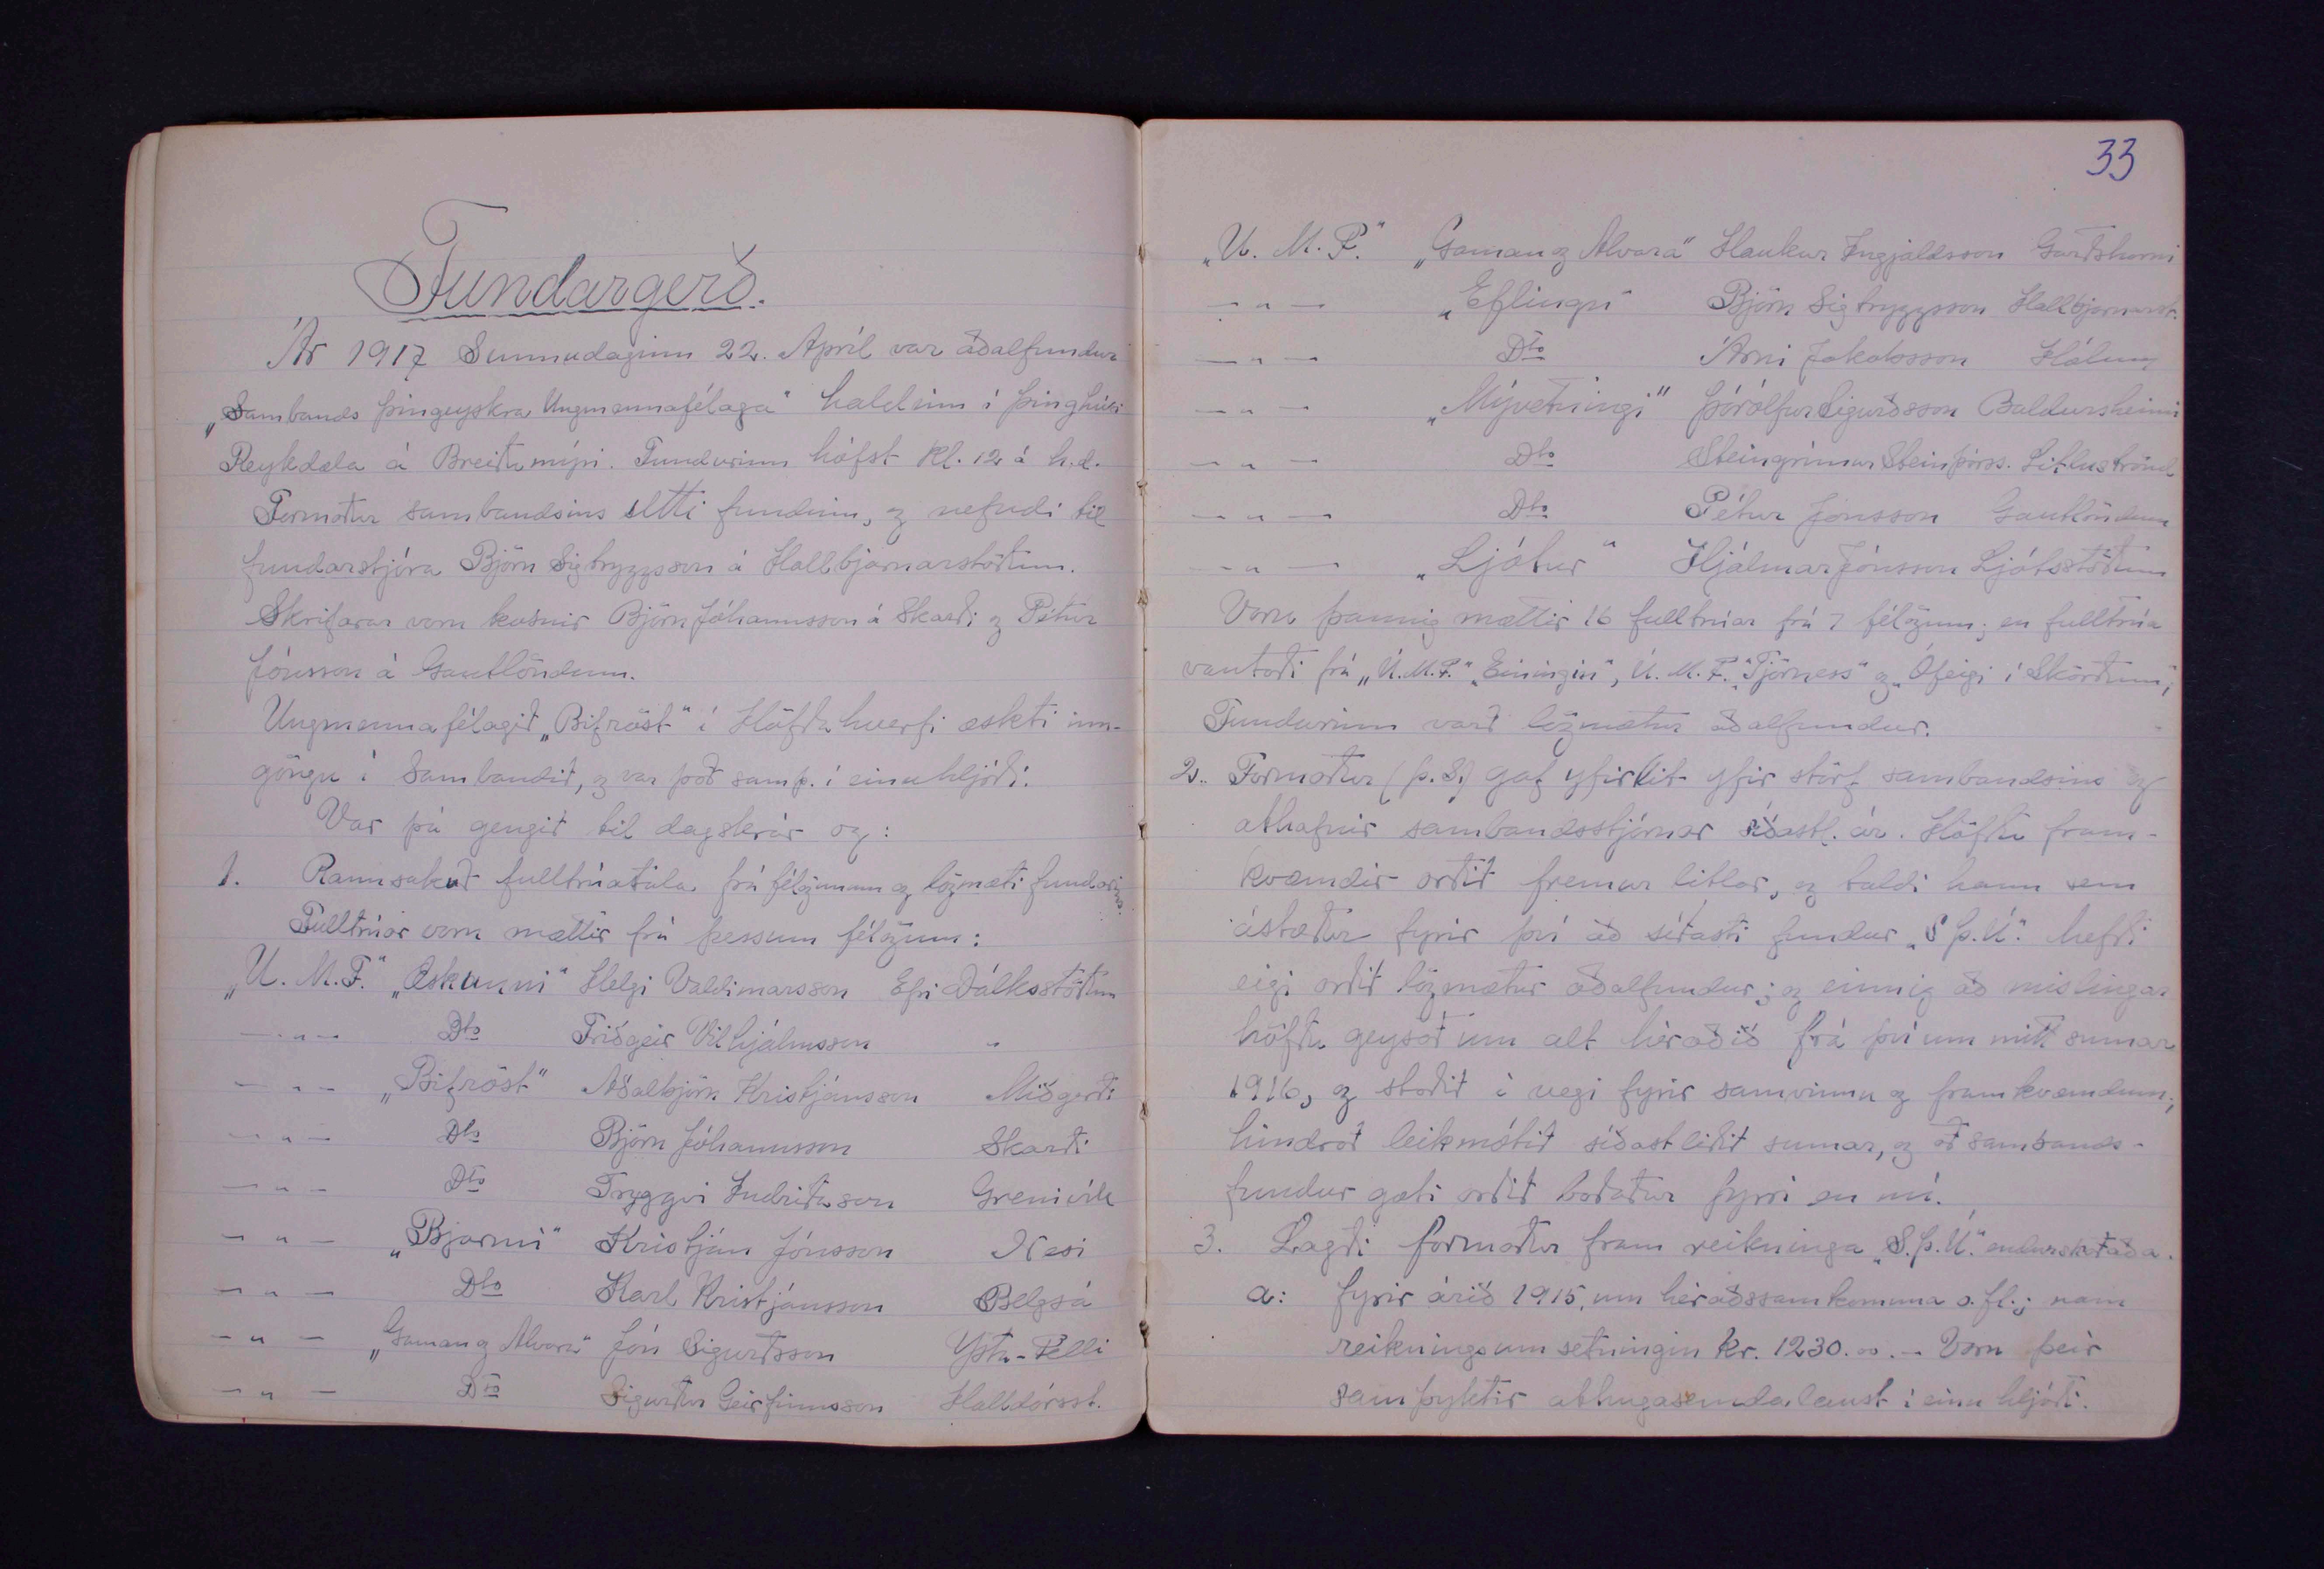 Fundargerð.
Ár 1917 Sunnudaginn 22. Apríl var aðalfundur
„Sambands þingeyskra Ungmennafélaga" haldinn í þinghúsi
Reykdæla á Breiðumýri. Fundurinn hófst kl. 12 á h.d.
Formaður sambandsins setti fundinn, og nefndi til
fundarstjóra Björn Sigtryggsson á Hallbjarnarstöðum.
Skrifarar voru kosnir Björn Jóhannsson á Skarði og Pétur
Jónsson á Gautlöndum.
Ungmennafélagið „Bifröst" í Höfðahverfi æskti inn-
göngu í Sambandið, og var það samþ. í einu hljóði.
Var þá gengið til dagskrár og:
1. Rannsakuð fulltrúatala frá félögunum og lögmæti fundarins.
Fulltrúar voru mættir frá þessum félögum:
„U. M. F." „Æskunni" Helgi Valdimarsson Efri Dálksstöðum
— „ — Dto Friðgeir Vilhjálmsson „
— „ — „Bifröst" Aðalbjörn Kristjánsson Miðgerði
— „ — Dto Björn Jóhannsson Skarði
— „ — Dto Tryggvi Indriðason Grenivík
— „ — „Bjarmi" Kristján Jónsson Nesi
— „ — Dto Karl Kristjánsson Belgsá
— „ — „Gaman og Alvara" Jón Sigurðsson Ysta-Felli
— „ — Dto Sigurður Geirfinnsson Halldórsst.
33
„U. M. F." „Gaman og Alvara" Haukur Ingjaldsson Garðshorni
— „ — „Eflingu" Björn Sigtryggsson Hallbjarnarst.
— „ — Dto Árni Jakobsson Hólum
— „ — „Mývetningi" Þórólfur Sigurðsson Baldursheimi
— „ — Dto Steingrímur Steinþórss. Litluströnd
— „ — Dto Pétur Jónsson Gautlöndum
— „ — „Ljótur" Hjálmar Jónsson Ljótsstöðum
Voru þannig mættir 16 fulltrúar frá 7 félögum; en fulltrúa
vantaði frá „U.M.F." „Einingin", U. M. F. „Tjörness" og „Ófeigi í Skörðum";
Fundurinn varð lögmætur aðalfundur.
2. Formaður (Þ. S.) gaf yfirlit yfir störf sambandsins og
athafnir sambandsstjórnar síðastl. ár. Höfðu fram-
kvæmdir orðið fremur litlar, og taldi hann sem
ástæður fyrir því að síðasti fundur „S.Þ.U." hefði
eigi orðið lögmætur aðalfundur; og einnig að mislingar
höfðu geysað um alt héraðið frá því um mitt sumar
1916, og staðið í vegi fyrir samvinnu og framkvæmdum;
hindrað leikmótið síðastliðið sumar, og að sambands-
fundur gæti orðið boðaður fyrri en nú.
3. Lagði formaður fram reikninga „S.Þ.U." endurskoðaða.
a: fyrir árið 1915, um héraðssamkomuna o.fl.; nam
reikningsumsetningin kr. 1230.00. – Voru þeir
samþyktir athugasemdalaust í einu hljóði.